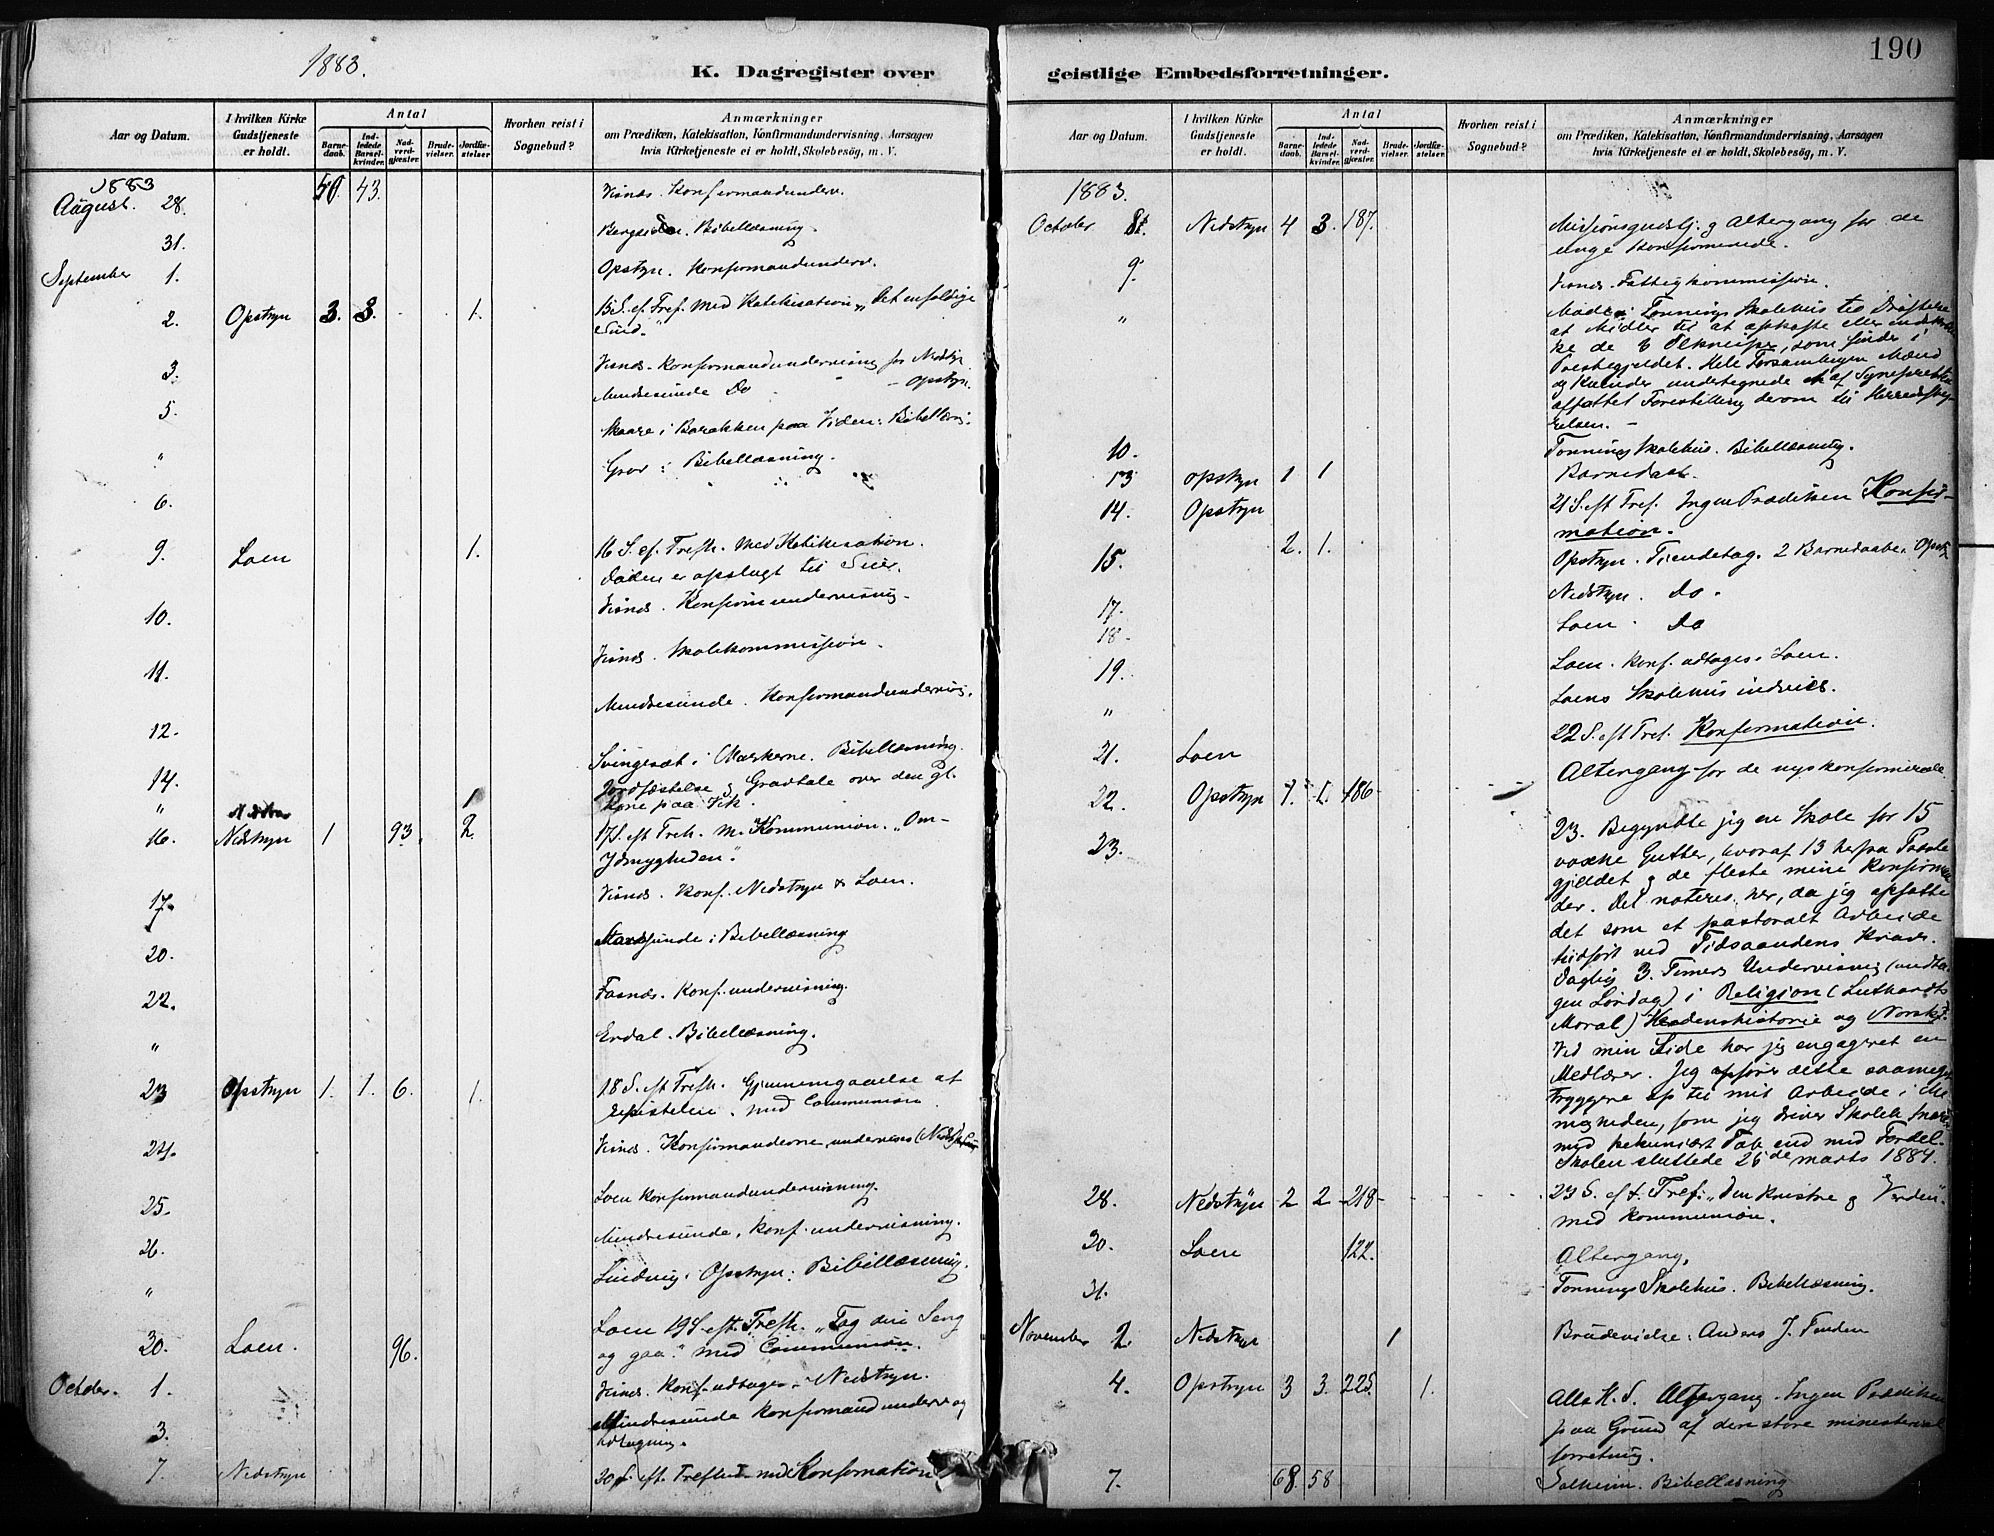 1883.
K. Dagregister over
Aar og Datum.
I hvilken Kirke Gudstjeneste er holdt.
Antal
Barnedaab.
Indledede Barselkvinder.
Nadverdgjester.
Brudevielser.
Jordfæstelser
Hvorhen reist i Sognebud?
Anmærkninger
om Prædiken, Katekisation, Konfirmandundervisning, Aarsagen
hvis Kirketjeneste ei er holdt, Skolebesög, m. V.
1883
August. 28. 50 43. Visnæs. Konfirmandunderv.
31. Bibellæsning.
September 1. Opstryn. Konfirmandunderv.
2. Opstryn 3. 3. 1. Med Katekisation „Det enfoldige
3. Visnæs. Konfirmandundervisning for Nedstryn
Mindresunde Do - Opstryn.
5. Skaare i Barakken paa Viden: Bibellæsn.
" Grov : Bibellæsning.
6.
9. Loen 1. 16 S. ef. Trefh. Med Katekisation.
10. Visnæs.
11. Visnæs. Skolekommission.
Mindresunde. Konfirmandundervisn.
12.
14. Bibellæsning
" Jordfæstelse og Gravtale over den gl.
Kone paa Vik.
16. Nedstryn 1 93. 2. 17 S. eft Trefh. m. Kommunion. „Om
Ydmygheden".
17. Visnæs. Konf. Nedstryn & Loen.
20. Bibellæsning
22. Konf. undervisning.
" Erdal. Bibellæsning.
23 Opstryn 1. 1. 6. 1. 18 S. eft Trefh. Gjennemgaaelse af
Epistelen. med Communion
24. Visnæs. Konfirmanderne undervises
25. Loen Konfirmandundervisning.
26. Mindresunde, Konf. undervisning.
" Opstryn: Bibellæsning.
30. Loen. 96. Loen 19 S. eft. Trefh. „Tag din Seng
og gaa." med Communion.
October. 1. Visnæs. Konf. udtages. Nedstryn.
3. Mindresunde Konfirmandunderv. og
Udtagning.
7. Nedstryn 20 S. eft. Trefh. med Konfirmation
190
geistlige Embedsforretninger.
Aar og Datum.
I hvilken Kirke Gudstjeneste er holdt.
Antal
Barnedaab.
Indledede Barselkvinder.
Nadverdgjester.
Brudevielser.
Jordfæstelser.
Hvorhen reist i Sognebud?
Anmærkninger
om Prædiken, Katekisation, Konfirmandundervisning, Aarsagen
hvis Kirketjeneste ei er holdt, Skolebesög, m. V.
1883.
October 8. Nedstryn 4 3. 187. Missionsgudstj. og Altergang for de
unge Konfirmerede.
9. Visnæs. Fattigkommission.
" Møde i Tonnings Skolehus til Drøftelse
af Midler til at afskaffe eller
som findes i
Præstegjeldet. Hele Forsamlingen Mænd
og Kvinder undertegnede
affattet Forestilling derom til Herredsstyrelsen.
10. Tonnings Skolehus. Bibellæsning.
13 Opstryn 1 1 Barnedaab.
14. Opstryn 21 S. eft Tref. Ingen Prædiken Konfirmation.
15. 2. 1. Opstryn. Tiendetag. 2 Barnedaabe.
17. Nedstryn. Do.
18. Loen. Do
19. Loen. Konf. udtages. Loen.
" Loens Skolehus indvies.
21. Loen 22 S. eft Tref. Konfirmation.
22. Opstryn 1. 1. 186 Altergang for de nyskonfirmerede.
23. 23. Begyndte jeg en Skole for 15
voxne Gutter, hvoraf 13 herfra Præstegjeldet
og de fleste mine Konfirmander.
Det noteres her, da jeg opfatte
det som et pastoralt Arbeide
ved Tidsaandens Krav.
Daglig 3 Timers Undervisning (undtagen
Lørdag) i Religion (Luthardts
Moral) Verdenshistorie og Norsk.
Ved min Side har jeg engageret en
Medlærer. Jeg opfører dette saameget
tryggere op til mit Arbeide i
som jeg driver Skolen snarere
med pekuniært Tab end med Fordel.
Skolen sluttede 26de marts 1884.
28. Nedstryn 2 2 218 23 S. eft. Tref. „Den Kristne og Verden".
med Kommunion.
30. Loen 122. Altergang,
31. Tonnings Skolehus. Bibellæsning.
November 2. Nedstryn 1 Brudevielse. Anders J.
4. Opstryn 3 3. 225. 1. Alle H. S. Altergang. Ingen Prædiken
paa Grund af den store ministerial
forretning.
7. 68. 58 Solheim. Bibellæsning